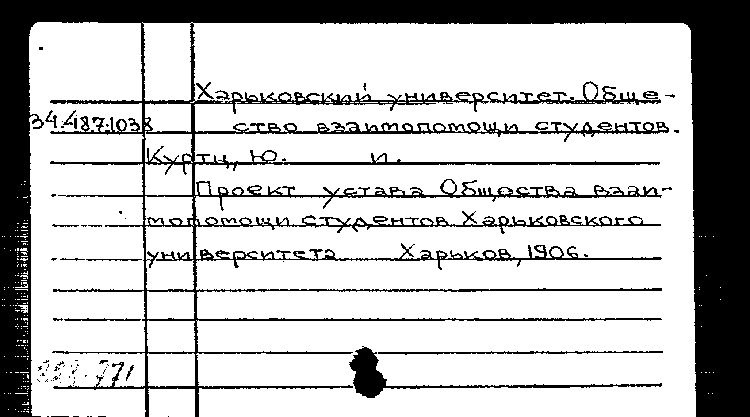 Харьковский университет. Обще-
34.487.1038 ство взаимопомощи студентов.
Куртц, Ю. и.
Проект устава Общества взаи-
мопомощи студентов Харьковского
университета Харьков, 1906.